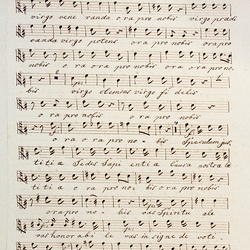 virgo vene randa ora pro nobis virgo prædi
canda virgo potens ora pro nobis ora pro
nobis ora ora pro nobis ora pro no
bis virgo clemens virgo fi delis
ora pro nobis ora pro nobis
ora ora pro no bis Speculum jus
titiæ Sedes Sapi entiæ Causa nostræ læ
titiæ ora pro no bis ora pro nobis
ora pro no bis vas Spiritu ale
vas honor abi le vas in signe de voti